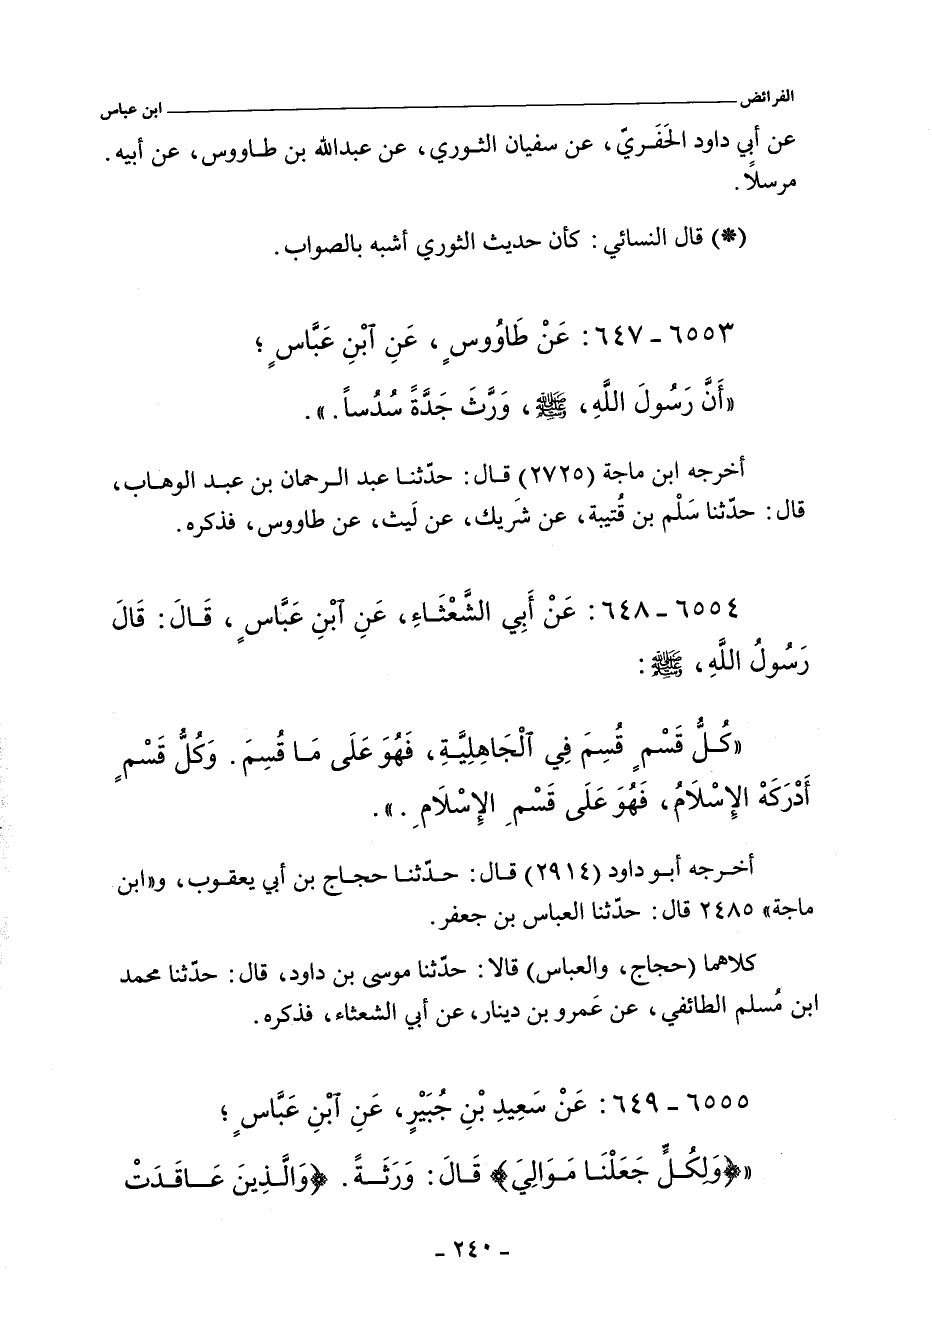 الفرائض ــــــــ ابن عباس
عن أبي داود الحَفَريّ، عن سفيان الثوري، عن عبدالله بن طاووس، عن أبيه.
مرسلاً.
(*) قال النسائي: كأن حديث الثوري أشبه بالصواب.
٦٥٥٣ - ٦٤٧: عَنْ طَاوُوسٍ، عَنِ ٱبْنِ عَبَّاسٍ؛
«أَنَّ رَسُولَ اللَّهِ، ﷺ، وَرَّثَ جَدَّةً سُدُساً.».
أخرجه ابن ماجة (٢٧٢٥) قال: حدّثنا عبد الرحمان بن عبد الوهاب،
قال: حدّثنا سَلْم بن قُتيبة، عن شَريك، عن لَيث، عن طاووس، فذكره.
٦٥٥٤ - ٦٤٨: عَنْ أَبِي الشَّعْثَاءِ، عَنِ ٱبْنِ عَبَّاسٍ، قَالَ: قَالَ
رَسُولُ اللَّهِ، ﷺ:
«كُلُّ قَسْمٍ قُسِمَ فِي ٱلْجَاهِلِيَّةِ، فَهُوَ عَلَى مَا قُسِمَ. وَكُلُّ قَسْمٍ
أَدْرَكَهُ الإِسْلَامُ، فَهُوَ عَلَى قَسْمِ الإِسْلَامِ.».
أخرجه أبو داود (٢٩١٤) قال: حدّثنا حجاج بن أبي يعقوب، و«ابن
ماجة» ٢٤٨٥ قال: حدّثنا العباس بن جعفر.
كلاهما (حجاج، والعباس) قالا: حدّثنا موسى بن داود، قال: حدّثنا محمد
ابن مُسلم الطائفي، عن عَمرو بن دينار، عن أبي الشعثاء، فذكره.
٦٥٥٥ - ٦٤٩: عَنْ سَعِيدِ بْنِ جُبَيْرٍ، عَنِ ٱبْنِ عَبَّاسٍ؛
«﴿وَلِكُلٍّ جَعَلْنَا مَوَالِيَ﴾ قَالَ: وَرَثَةً. ﴿وَالَّذِينَ عَاقَدَتْ
- ٢٤٠ -